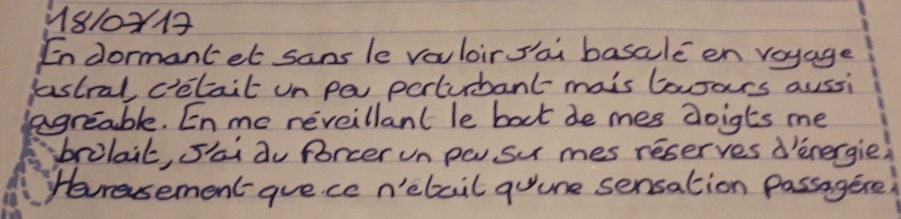 18/07/17
En dormant et sans le vouloir j'ai basculé en voyage
astral, c'était un peu perturbant mais toujours aussi
agréable. En me réveillant le bout de mes doigts me
brûlait, j'ai du forcer un peu sur mes réserves d'énergie.
Heureusement que ce n'était qu'une sensation passagére.